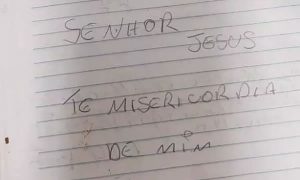 SENHOR
JESUS
TE MISERICORDIA
DE MIM